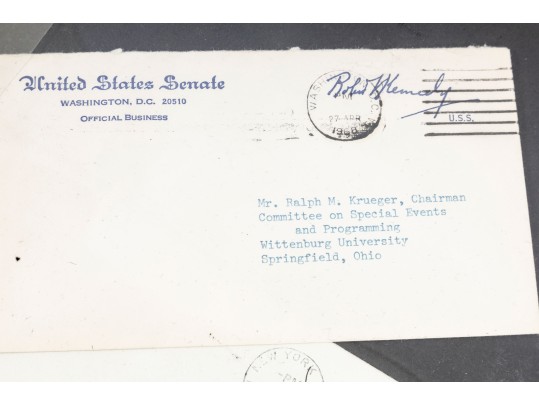 United States Senate
WASHINGTON, D.C. 20510
OFFICIAL BUSINESS
WASH D.C.
PM
22 APR
1968
Robert F Kennedy
U.S.S.
Mr. Ralph M. Krueger, Chairman
Committee on Special Events
and Programming
Wittenburg University
Springfield, Ohio
NEW YORK